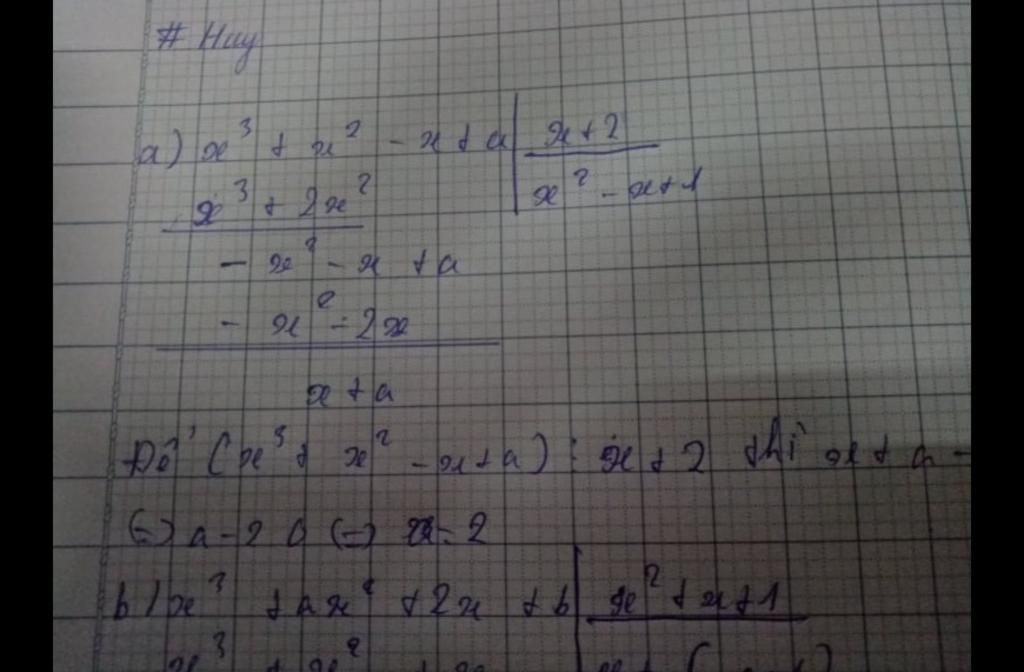 # Huy
a) x³ + x² - x + a | x + 2
x³ + 2x² | x² - x + 1
- x² - x + a
- x² - 2x
x + a
Để (x³ + x² - x + a) : x + 2 thì x + a -
(=) a - 2 0 (=) = 2
b) x³ + ax² + 2x + b | x² + x + 1
x³ + x² +